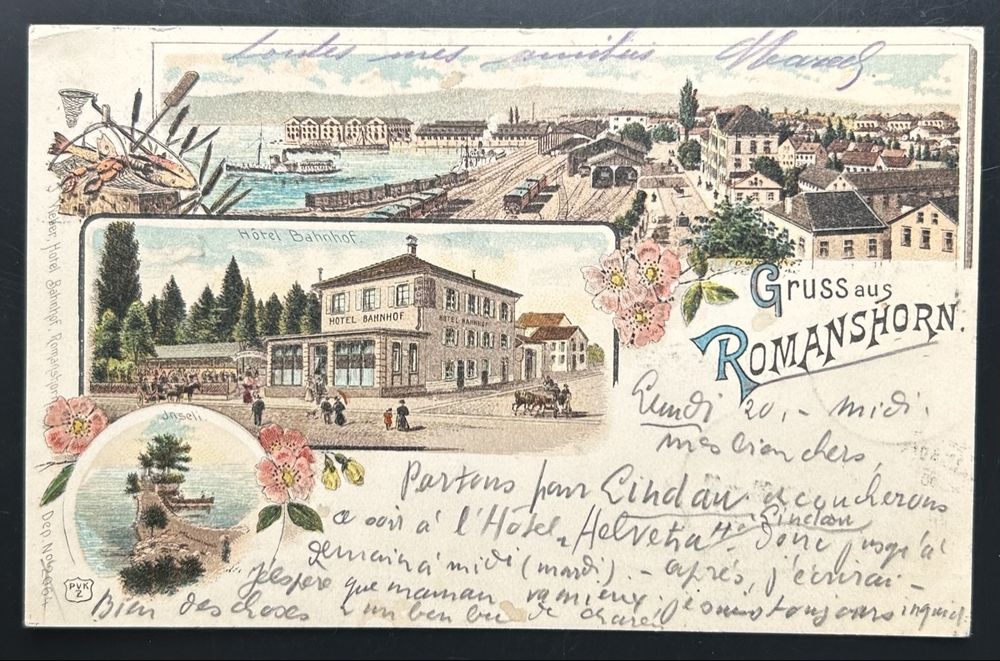 toutes mes amitiés
Hôtel Bahnhof.
HOTEL BAHNHOF
HOTEL BAHNHOF
Gruss aus
ROMANSHORN.
Inseli.
Hotel Bahnhof, Romanshorn
Dep. No 2064
PVK
Z
Lundi 20, - midi.
mes bien chers,
Partons pour Lindau & coucherons
ce soir à l'Hôtel "Helvetia" Lindau Donc jusqu'à
demain à midi (mardi). - après j'écrirai -
J'espère que maman va mieux. je suis toujours
Bien des choses